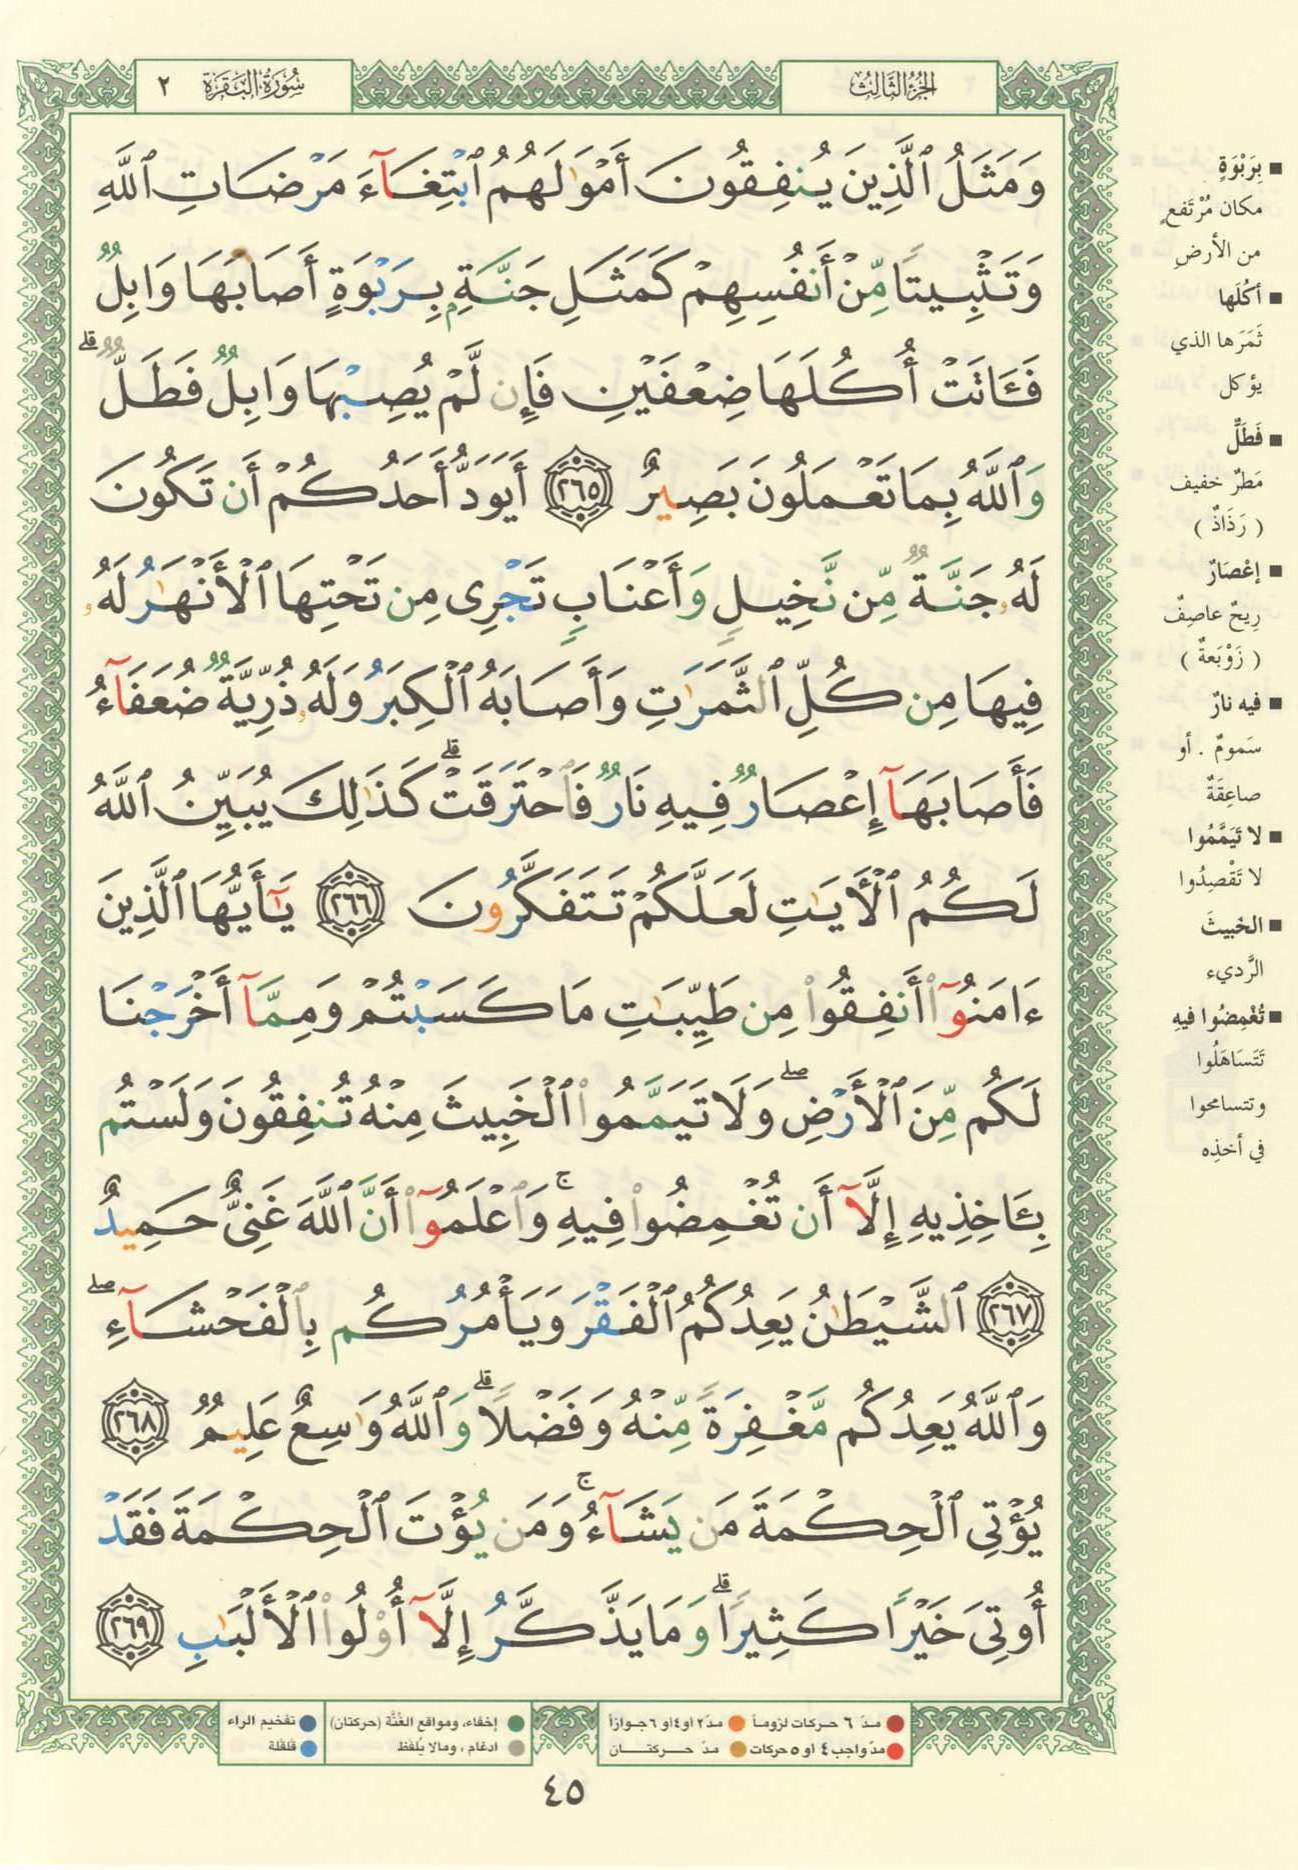 الجزء الثالث
سورة البقرة ٢
وَمَثَلُ ٱلَّذِينَ يُنفِقُونَ أَمْوَٰلَهُمُ ٱبْتِغَآءَ مَرْضَاتِ ٱللَّهِ
وَتَثْبِيتًا مِّنْ أَنفُسِهِمْ كَمَثَلِ جَنَّةٍۭ بِرَبْوَةٍ أَصَابَهَا وَابِلٌ
فَـَٔاتَتْ أُكُلَهَا ضِعْفَيْنِ فَإِن لَّمْ يُصِبْهَا وَابِلٌ فَطَلٌّ ۗ
وَٱللَّهُ بِمَا تَعْمَلُونَ بَصِيرٌ ٢٦٥ أَيَوَدُّ أَحَدُكُمْ أَن تَكُونَ
لَهُۥ جَنَّةٌ مِّن نَّخِيلٍ وَأَعْنَابٍ تَجْرِى مِن تَحْتِهَا ٱلْأَنْهَٰرُ لَهُۥ
فِيهَا مِن كُلِّ ٱلثَّمَرَٰتِ وَأَصَابَهُ ٱلْكِبَرُ وَلَهُۥ ذُرِّيَّةٌ ضُعَفَآءُ
فَأَصَابَهَآ إِعْصَارٌ فِيهِ نَارٌ فَٱحْتَرَقَتْ ۗ كَذَٰلِكَ يُبَيِّنُ ٱللَّهُ
لَكُمُ ٱلْـَٔايَٰتِ لَعَلَّكُمْ تَتَفَكَّرُونَ ٢٦٦ يَٰٓأَيُّهَا ٱلَّذِينَ
ءَامَنُوٓا۟ أَنفِقُوا۟ مِن طَيِّبَٰتِ مَا كَسَبْتُمْ وَمِمَّآ أَخْرَجْنَا
لَكُم مِّنَ ٱلْأَرْضِ ۖ وَلَا تَيَمَّمُوا۟ ٱلْخَبِيثَ مِنْهُ تُنفِقُونَ وَلَسْتُم
بِـَٔاخِذِيهِ إِلَّآ أَن تُغْمِضُوا۟ فِيهِ ۚ وَٱعْلَمُوٓا۟ أَنَّ ٱللَّهَ غَنِىٌّ حَمِيدٌ
٢٦٧ ٱلشَّيْطَٰنُ يَعِدُكُمُ ٱلْفَقْرَ وَيَأْمُرُكُم بِٱلْفَحْشَآءِ ۖ
وَٱللَّهُ يَعِدُكُم مَّغْفِرَةً مِّنْهُ وَفَضْلًا ۗ وَٱللَّهُ وَٰسِعٌ عَلِيمٌ ٢٦٨
يُؤْتِى ٱلْحِكْمَةَ مَن يَشَآءُ ۚ وَمَن يُؤْتَ ٱلْحِكْمَةَ فَقَدْ
أُوتِىَ خَيْرًا كَثِيرًا ۗ وَمَا يَذَّكَّرُ إِلَّآ أُو۟لُوا۟ ٱلْأَلْبَٰبِ ٢٦٩
■ بِرَبْوَةٍ
مكان مُرْتَفعٍ
من الأرضِ
■ أُكُلَها
ثَمَرَها الذي
يؤكل
■ فَطَلٌّ
مَطَرٌ خفيف
( رَذَاذٌ )
■ إعْصَارٌ
رِيحٌ عاصِفٌ
( زَوْبَعةٌ )
■ فيه نارٌ
سَمومٌ . أو
صاعِقَةٌ
■ لا تَيَمَّمُوا
لا تَقْصِدُوا
■ الخَبيثَ
الرَّديء
■ تُغْمِضُوا فيهِ
تَتَسَاهَلُوا
وتتسامحوا
في أخذِه
مدّ ٦ حركات لزوماً مدّ ٢ او ٤ او ٦ جوازاً
مدّ واجب ٤ او ٥ حركات مدّ حركتان
إخفاء، ومواقع الغُنَّة (حركتان) تفخيم الراء
ادغام ، ومالا يُلفظ قلقلة
٤٥